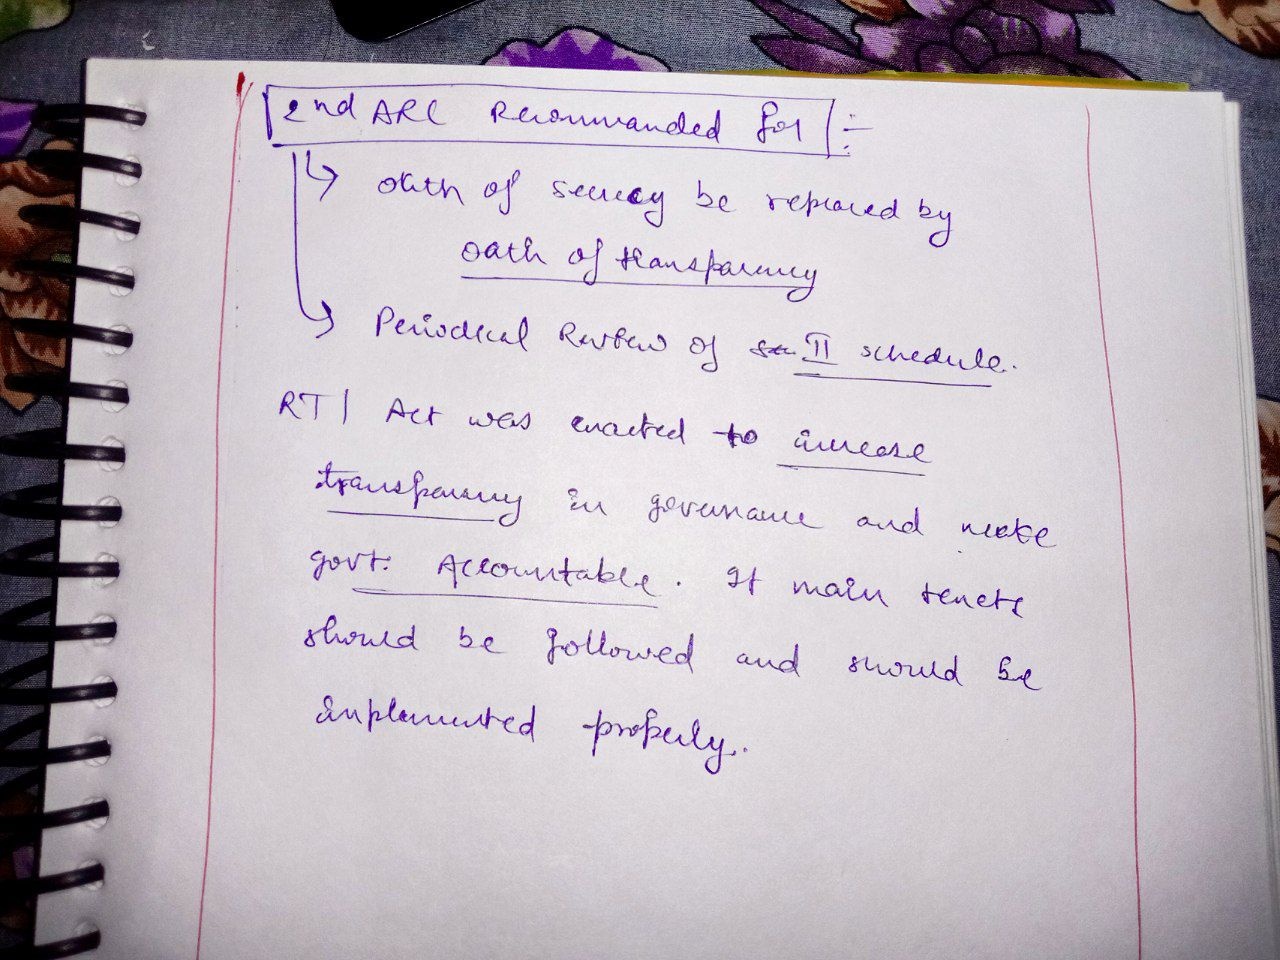 2nd ARC Recommanded for :-
↳ Oath of secrecy be replaced by
oath of transparency
↳ Periodical Review of II schedule.
RTI Act was enacted to increase
transparency in governance and make
govt. Accountable. It main tenets
should be followed and should be
implemented properly.